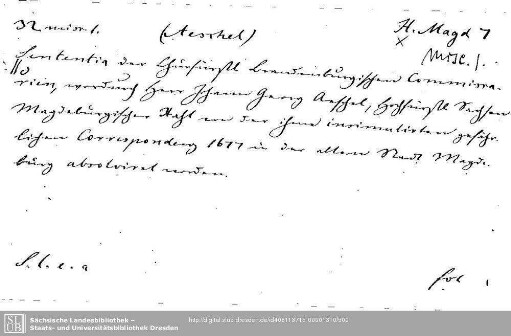 (Aeschel) H. Magd 7
Misc. 1.
Sententia der Churfürstl Brandenburgischen Commissa-
rien, wordurch Herr Johann Georg Aeschel, Hochfürstl Sachsen
Magdeburgischer Raht von der ihme insimulirten gefähr-
lichen Correspondenz 1677 in der alten Stadt Magde-
burg absolviret worden.
S. l. e. a
fol
Sächsische Landesbibliothek –
Staats- und Universitätsbibliothek Dresden